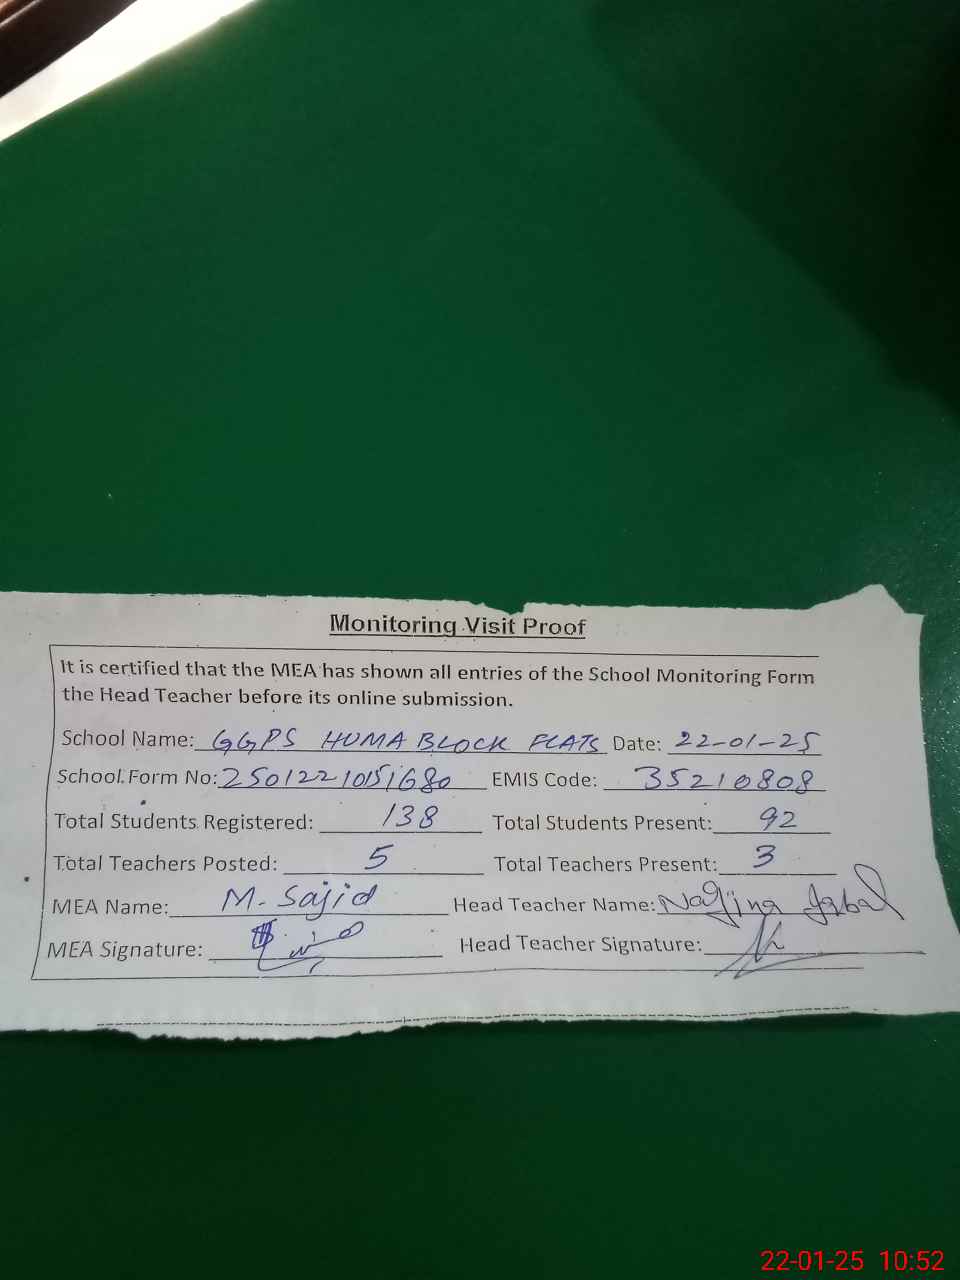 Monitoring Visit Proof
It is certified that the MEA has shown all entries of the School Monitoring Form
the Head Teacher before its online submission.
School Name: GGPS HUMA BLOCK FLATS Date: 22-01-25
School Form No: 25012210151680 EMIS Code: 35210808
Total Students Registered: 138 Total Students Present: 92
Total Teachers Posted: 5 Total Teachers Present: 3
MEA Name: M. Sajid Head Teacher Name: Nagina Iqbal
MEA Signature: Head Teacher Signature:
22-01-25 10:52